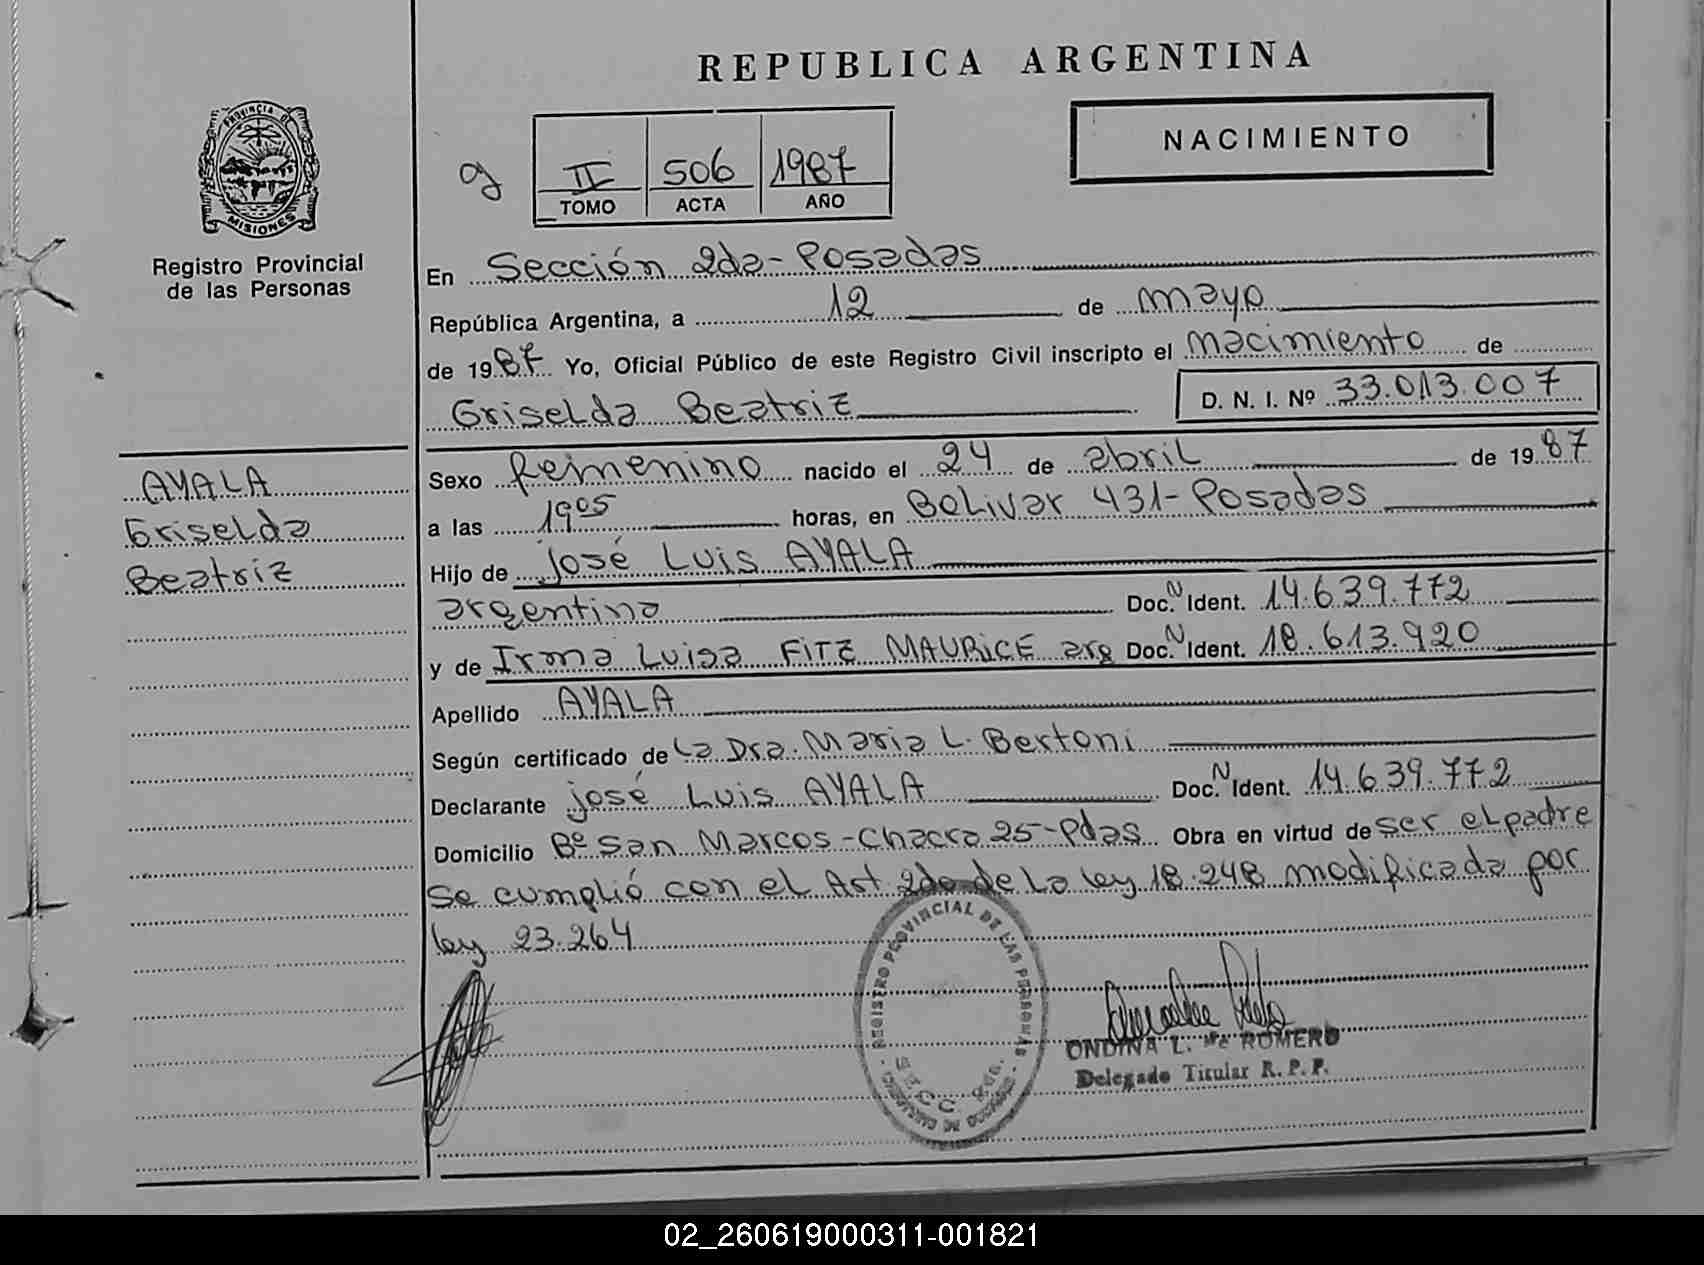 REPUBLICA ARGENTINA
PROVINCIA DE
MISIONES
Registro Provincial
de las Personas
II 506 1987
TOMO ACTA AÑO
NACIMIENTO
En Sección 2da-Posadas
República Argentina, a 12 de mayo
de 1987 Yo, Oficial Público de este Registro Civil inscripto el nacimiento de
Griselda Beatriz D. N. I. Nº 33.013.007
AYALA
Griselda
Beatriz
Sexo femenino nacido el 24 de abril de 1987
a las 19 05 horas, en Bolivar 431-Posadas
Hijo de José Luis AYALA
argentino Doc. N Ident. 14.639.772
y de Irma Luisa FITZ MAURICE arg Doc. N Ident. 18.613.920
Apellido AYALA
Según certificado de La Dra. Maria L. Bertoni
Declarante José Luis AYALA Doc. N Ident. 14.639.772
Domicilio Bº San Marcos-Chacra 25-Pdas Obra en virtud de ser el padre
se cumplió con el Art 2do de la ley 18.248 modificada por
ley 23.264
REGISTRO PROVINCIAL DE LAS PERSONAS
SECC 2da.
ONDINA L. de ROMERO
Delegado Titular R. P. P.
02_260619000311-001821